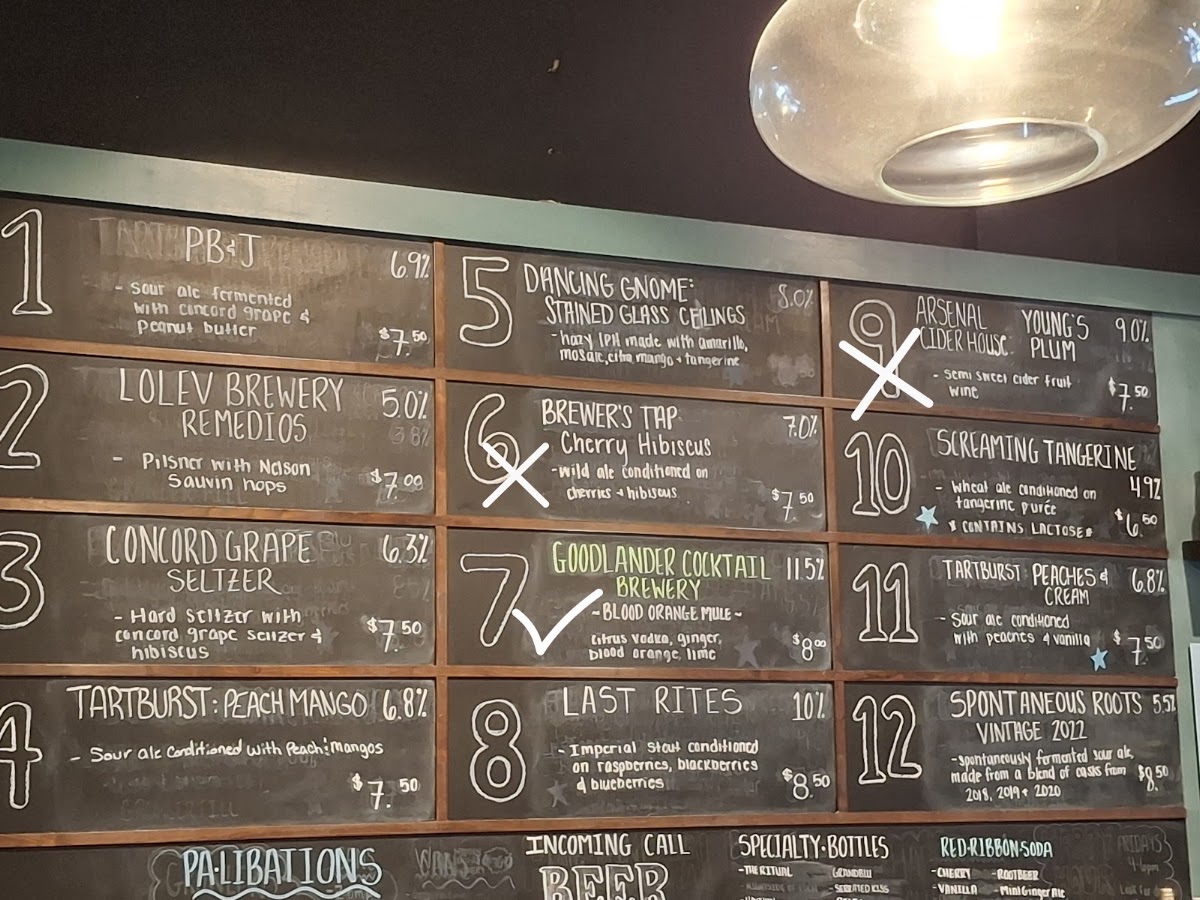 1
PB&J
6.9%
- Sour ale fermented
with concord grape &
peanut butter
$7.50
2
LOLEV BREWERY
REMEDIOS
5.0%
- Pilsner with Nelson
Sauvin hops
$7.00
3
CONCORD GRAPE
SELTZER
6.3%
- Hard Seltzer with
concord grape seltzer &
hibiscus
$7.50
4
TARTBURST: PEACH MANGO 6.8%
- Sour ale conditioned with Peach & mangos
$7.50
5
DANCING GNOME:
STAINED GLASS CEILINGS
8.0%
- hazy IPA made with amarillo,
mosaic, citra mango + tangerine
6
BREWER'S TAP
Cherry Hibiscus
7.0%
- wild ale conditioned on
cherries + hibiscus
$7.50
7
GOODLANDER COCKTAIL
BREWERY
11.5%
~ BLOOD ORANGE MULE ~
citrus vodka, ginger,
blood orange, lime
$8.00
8
LAST RITES
10%
- Imperial Stout conditioned
on raspberries, blackberries
& blueberries
$8.50
9
ARSENAL
CIDER HOUSE:
YOUNG'S
PLUM
9.0%
- Semi sweet cider fruit
wine
$7.50
10
SCREAMING TANGERINE
4.9%
- Wheat ale conditioned on
tangerine purée
* CONTAINS LACTOSE *
$6.50
11
TARTBURST: PEACHES &
CREAM
6.8%
- Sour ale conditioned
with peaches & vanilla
$7.50
12
SPONTANEOUS ROOTS
VINTAGE 2022
5.5%
- Spontaneously fermented sour ale,
made from a blend of casks from
2018, 2019 + 2020
$8.50
PA·LIBATIONS
INCOMING CALL
BEER
SPECIALTY·BOTTLES
- THE RITUAL
- GRANDBLU
- SERRATED KISS
RED·RIBBON·SODA
- CHERRY
- ROOTBEER
- VANILLA
- Mini Ginger Ale
FRIDAYS
4-6pm